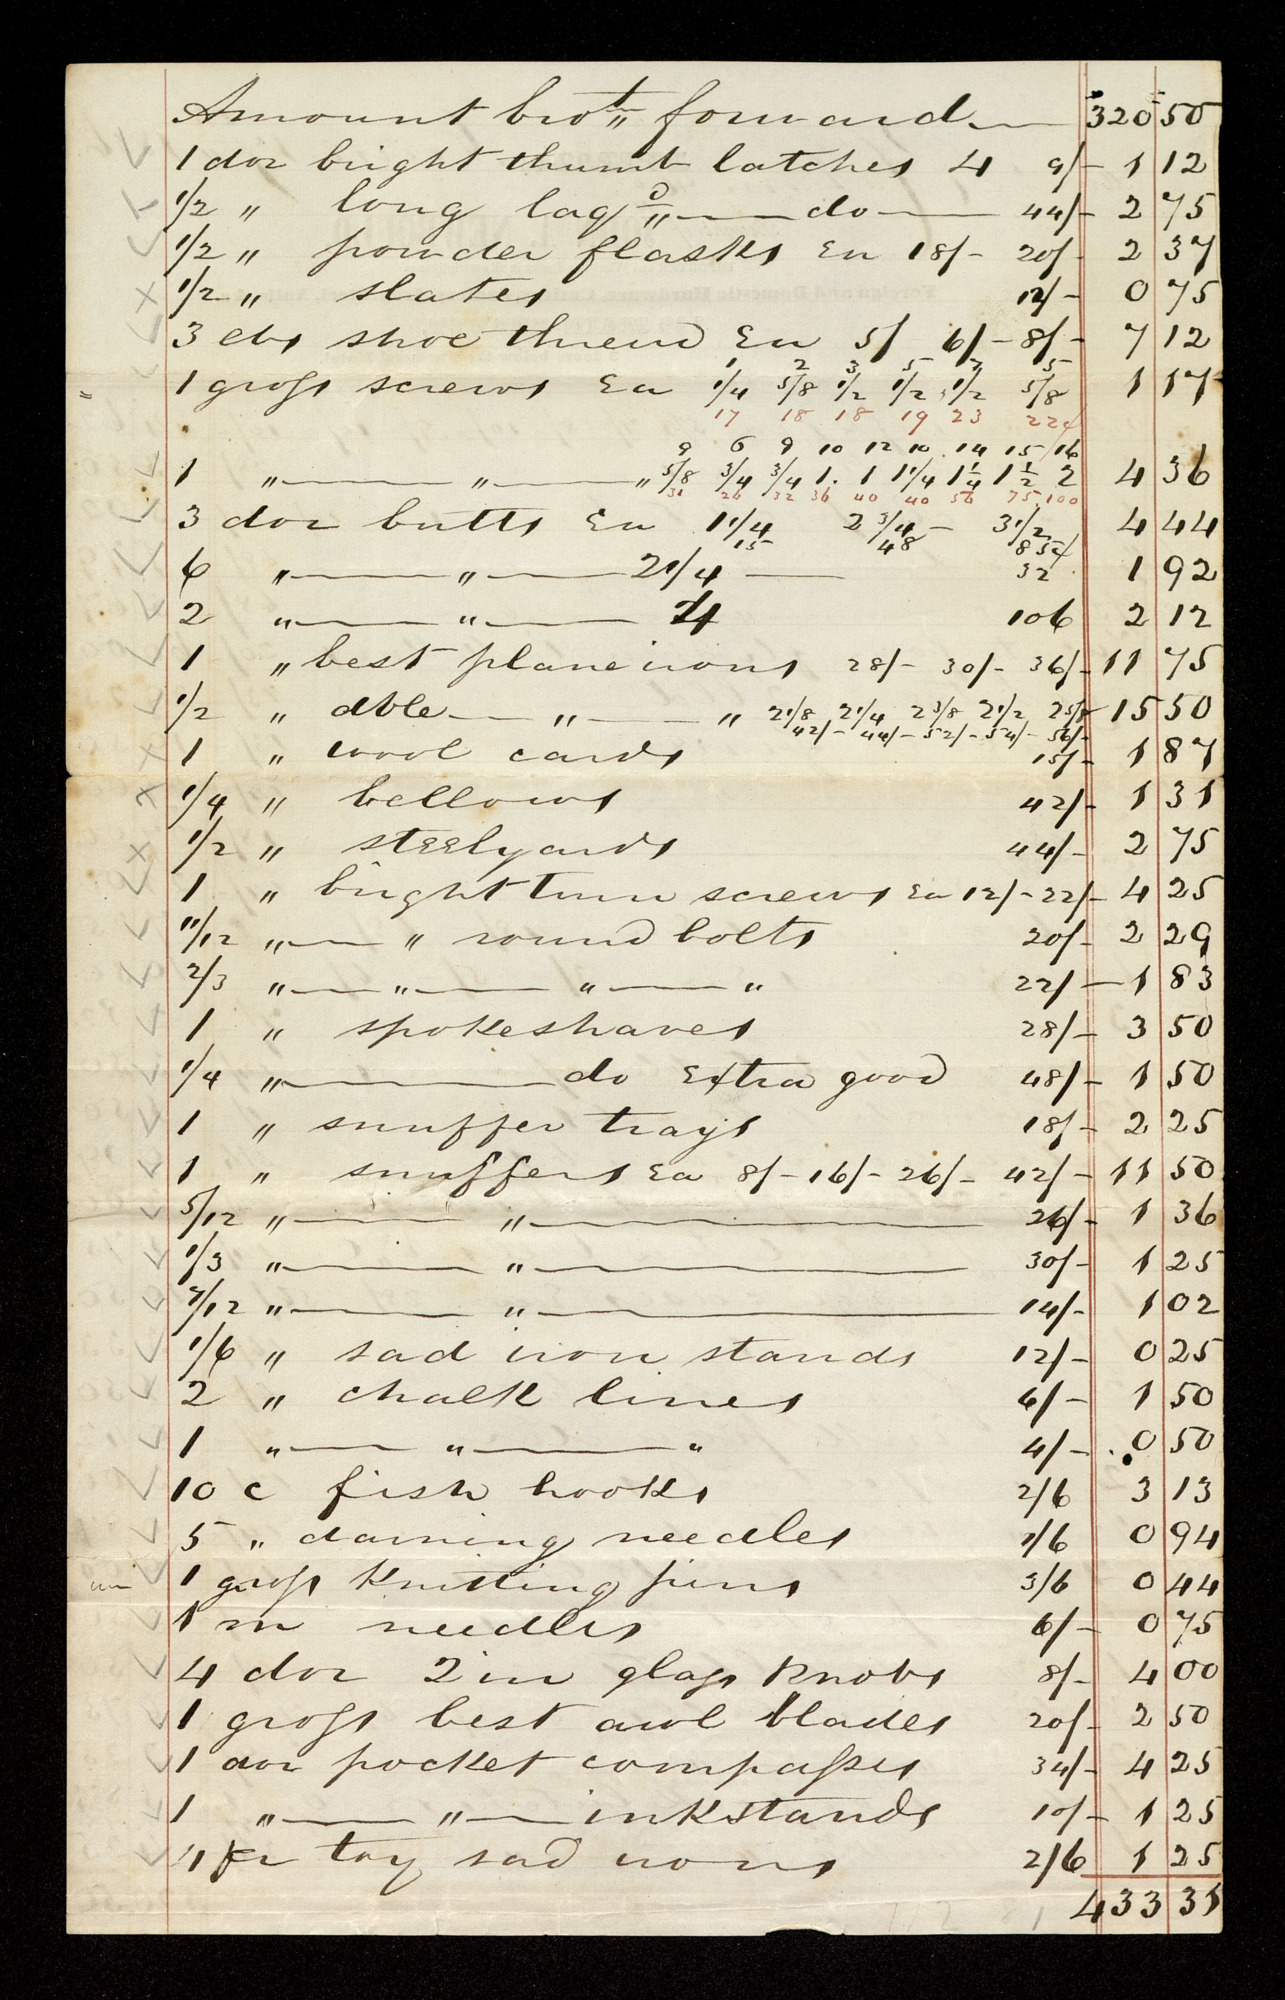 Amount brot forward — 320 50
1 doz bright thumb latches 4 9/- 1 12
1/2 " long laqd " — do — 44/- 2 75
1/2 " powder flasks Ea 18/- 20/- 2 37
1/2 " slates 12/- 0 75
3 lbs shoe thread Ea 5/ 6/- 8/- 7 12
1 2 3 5 7 5
1 gross screws Ea 1/4 5/8 1/2 1/2 1/2 5/8 1 17
17 18 18 19 23 22
9 6 9 10 12 10 14 15 16
1 " — " — " 5/8 3/4 3/4 1 1 1 1/4 1 1/4 1 1/2 2 4 36
31 26 32 36 40 40 56 75 100
3 doz butts Ea 1 1/4 2 3/4 - 3 1/2 4 44
15 48 85
6 " — " — 2 1/4 — 32 1 92
2 " — " — 4 106 2 12
1 " best plane irons 28/- 30/- 36/- 11 75
1/2 " dble — " — " 2 1/8 2 1/4 2 3/8 2 1/2 2 5/8 15 50
42/- 44/- 52/- 54/- 56/-
1 " wool cards 15/- 1 87
1/4 " bellows 42/- 1 31
1/2 " steelyards 44/- 2 75
1 " bright turn screws Ea 12/- 22/- 4 25
11/12 " — " round bolts 20/- 2 29
2/3 " — " — " — " 22/- 1 83
1 " spokeshaves 28/- 3 50
1/4 " — do Extra good 48/- 1 50
1 " snuffer trays 18/- 2 25
1 " snuffers Ea 8/- 16/- 26/- 42/- 11 50
5/12 " — " — 26/- 1 36
1/3 " — " — 30/- 1 25
7/12 " — " — 14/- 1 02
1/6 " sad iron stands 12/- 0 25
2 " chalk lines 6/- 1 50
1 " — " — " 4/- 0 50
10 c fish hooks 2/6 3 13
5 " darning needles 1/6 0 94
1 gross Knitting pins 3/6 0 44
1 m needles 6/- 0 75
4 doz 2 in glass Knobs 8/- 4 00
1 gross best awl blades 20/- 2 50
1 doz pocket compasses 34/- 4 25
1 " — " — inkstands 10/- 1 25
4 pr toy sad irons 2/6 1 25
433 31